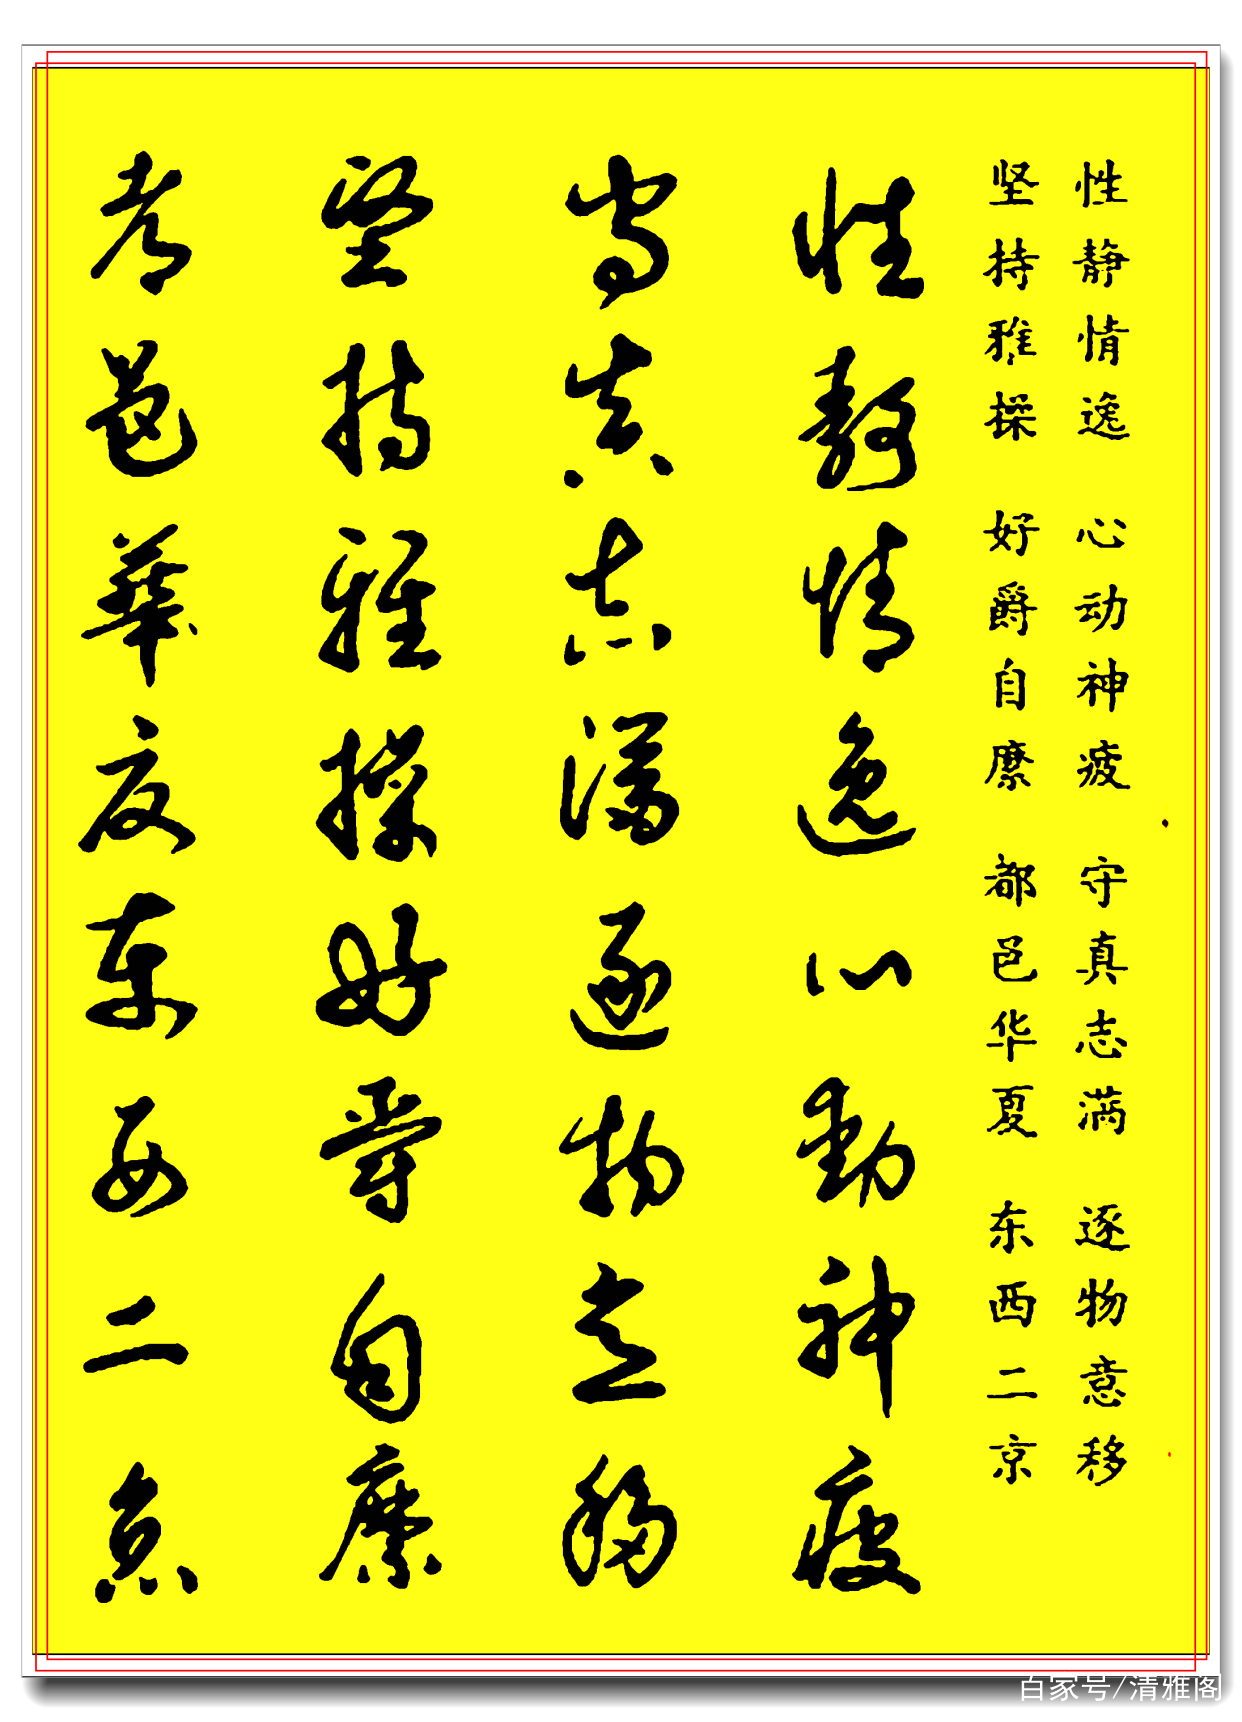 性静情逸 心动神疲 守真志满 逐物意移
坚持雅操 好爵自縻 都邑华夏 东西二京
性静情逸心動神疲
守真志满逐物意移
坚持雅操好爵自縻
都邑華夏东西二京
百家号/清雅阁